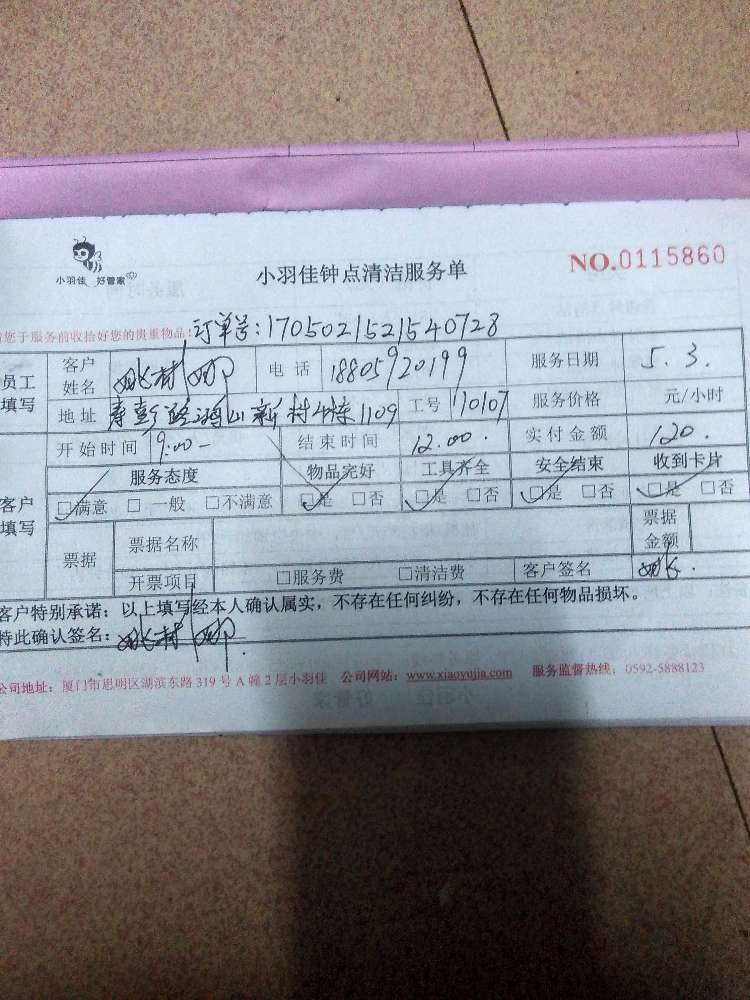 小羽佳 好管家
小羽佳钟点清洁服务单
NO.0115860
您于服务前收拾好您的贵重物品:订单号:1705021521540728
员工填写
客户姓名 姚 娜 电话 18805920199 服务日期 5.3.
地址 新村 1109 工号 110107 服务价格 元/小时
客户填写
开始时间 9:00- 结束时间 12.00. 实付金额 120.
服务态度 物品完好 工具齐全 安全结束 收到卡片
☑满意 □一般 □不满意 ☑是 □否 ☑是 □否 ☑是 □否 ☑是 □否
票据 票据名称 票据金额
开票项目 □服务费 □清洁费 客户签名 姚
客户特别承诺:以上填写经本人确认属实,不存在任何纠纷,不存在任何物品损坏。
特此确认签名:姚 娜
公司地址:厦门市思明区湖滨东路 319 号 A 幢 2 层小羽佳 公司网站:www.xiaoyujia.com 服务监督热线:0592-5888123